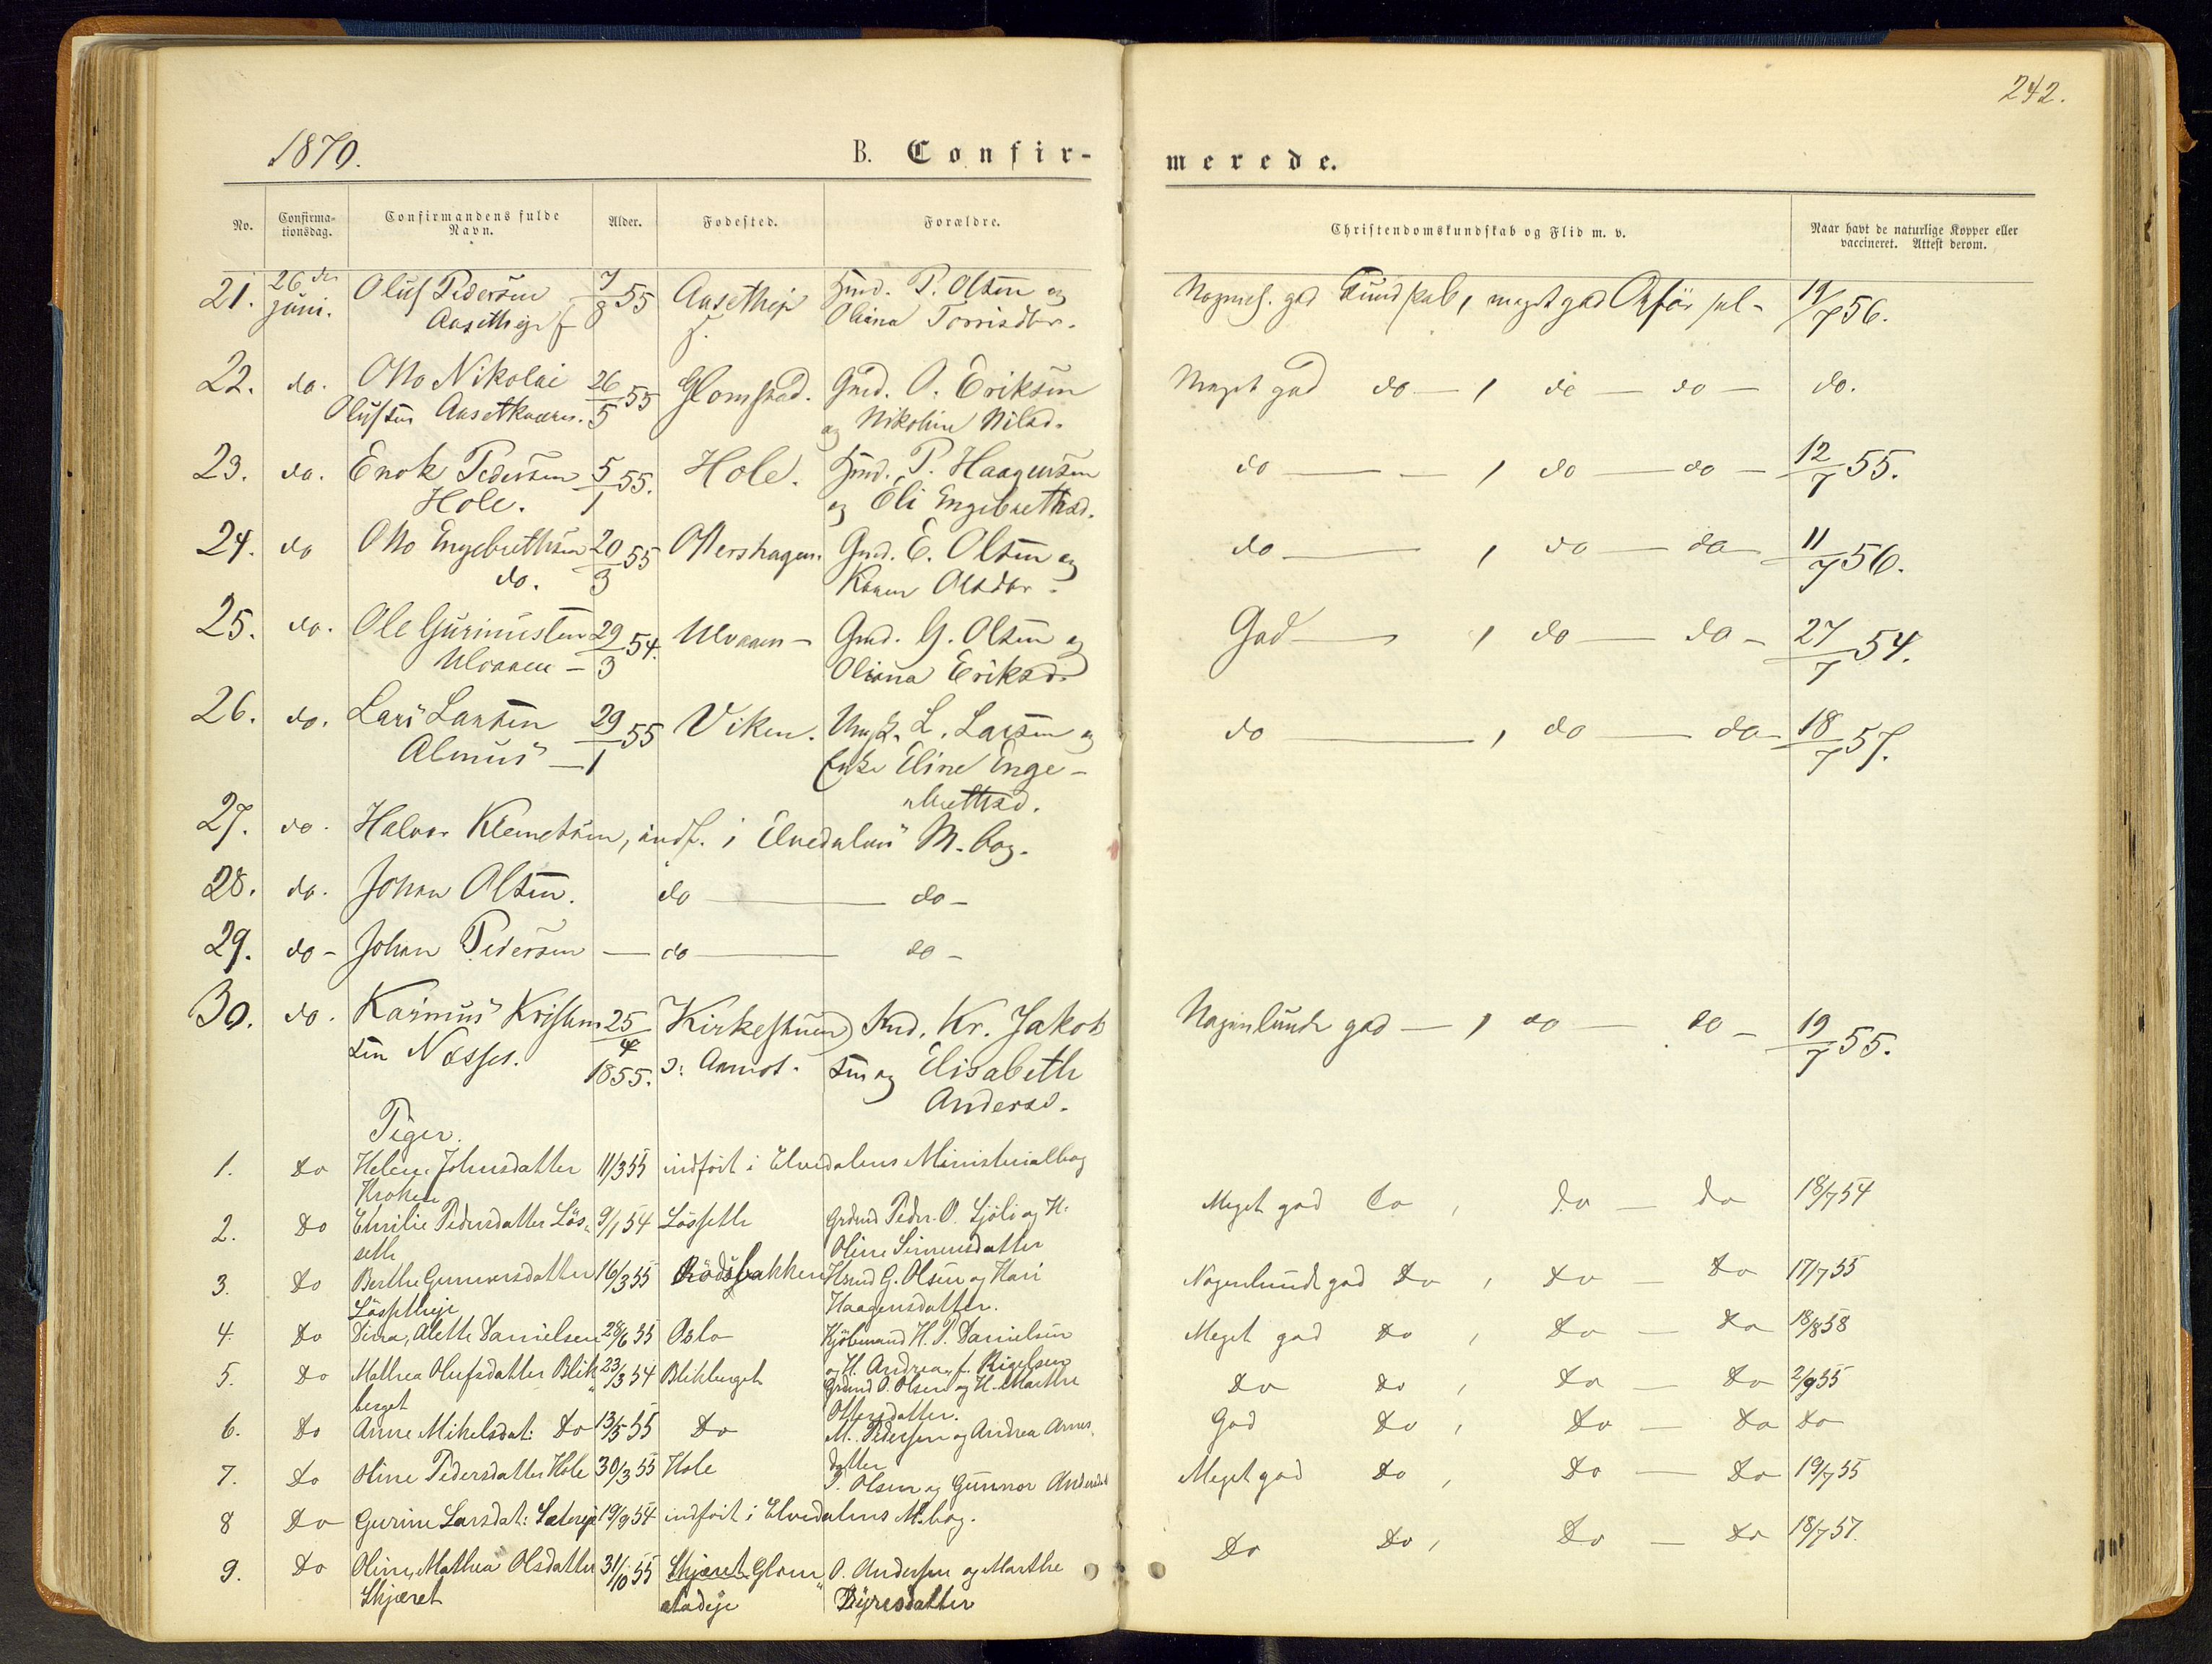 242.
1870.
B. Confir-
merede.
No.
Confirma-
tionsdag.
Confirmandens fulde
Navn.
Alder.
Fødested.
Forældre.
Christendomskundskab og Flid m. v.
Naar havt de naturlige Kopper eller
vaccineret. Attest derom.
21. 26 de Oluf Pedersen 7/8 55 Aasethejr P. Olsen og god Kundskab, meget god Opførsel - 19/7 56.
juni. Oliana
22. do. Otto Nikolai 26/5 55 Glomstad. Gmd. O. Eriksen Meget god do - , do - do - do.
Olufsen Aasetkværn. og Nikoline Nilsd.
23. do. Enok Pedersen 5/1 55. Hole. P. Haagensen do - , do - do - 12/7 55.
Hole. og Eli Engebrethsd.
24. do Otto Engebrethsen 20/3 55 Ottershagen. Gmd. E. Olsen og do - , do - do 11/7 56.
do. Karen Olsdtr.
25. do. Ole Gurinusten 29/3 54. Ulvaaen - Gmd. G. Olsen og God - , do - do - 27/7 54.
Ulvaaen - Oliana Eriksd.
26. do. Lars Larsen 29/1 55 Viken. L. Larsen og do - , do - do - 18/7 57.
Almus - Enke Eline Enge-
brethsd.
27. do. Halvor Klemetsen, indf. i Elvedalens M. bog.
28. do. Johan Olsen. do - do -
29. do - Johan Pedersen - do - do -
30. do. Kasinus Kristian 25/4 Kirkestuen Kr. Jakob Nogenlunde god - , do - do - 19/7 55.
sen Næsset. 1855. i Aamot. sen og Elisabeth
Andersd.
Piger.
1. Do Helene Johnsdatter 11/3 55 indført i Elvedalens Ministerialbog
Kroken
2. Do Emilie Pedersdatter Løs- 9/1 54 Løsseth Grdmd Peder O. Sjøli og H. Meget god Do , Do - Do 18/7 54
seth Oline Simensdatter
3. Do Berthe Gunnersdatter 16/3 55 Rødsbakken Hsmd G. Olsen og Kari Nogenlunde god Do , Do - Do 17/7 55
Løssetheje Haagensdatter.
4. Do Alette Danielsen 28/6 55 Oslo Kjøbmand H. P. Danielsen Meget god Do , Do - Do 18/8 58
og H. Andrea, f. Rigelsen
5. Do Mathea Olufsdatter Blik- 23/3 54 Blikberget Grdmd O. Olsen og H. Marthe Do Do , Do - Do 2/9 55
berget Ottersdatter.
6. Do Anne Mikelsdat: Do 13/5 55 Do M. Pedersen og Andrea Arnes- God Do , Do - Do Do
datter
7. Do Oline Pedersdatter Hole 30/3 55 Hole P. Olsen og Gunnor Andersdat Meget god Do , Do - Do 19/7 55
8 Do Gurine Larsdat: 19/9 54 indført i Elvedalens M.bog.
9. Do Oline, Mathea Olsdatter 31/10 55 Skjæret Glom- O. Andersen og Marthe Do Do , Do - Do 18/7 57.
Skjæret stadeje Byresdatter